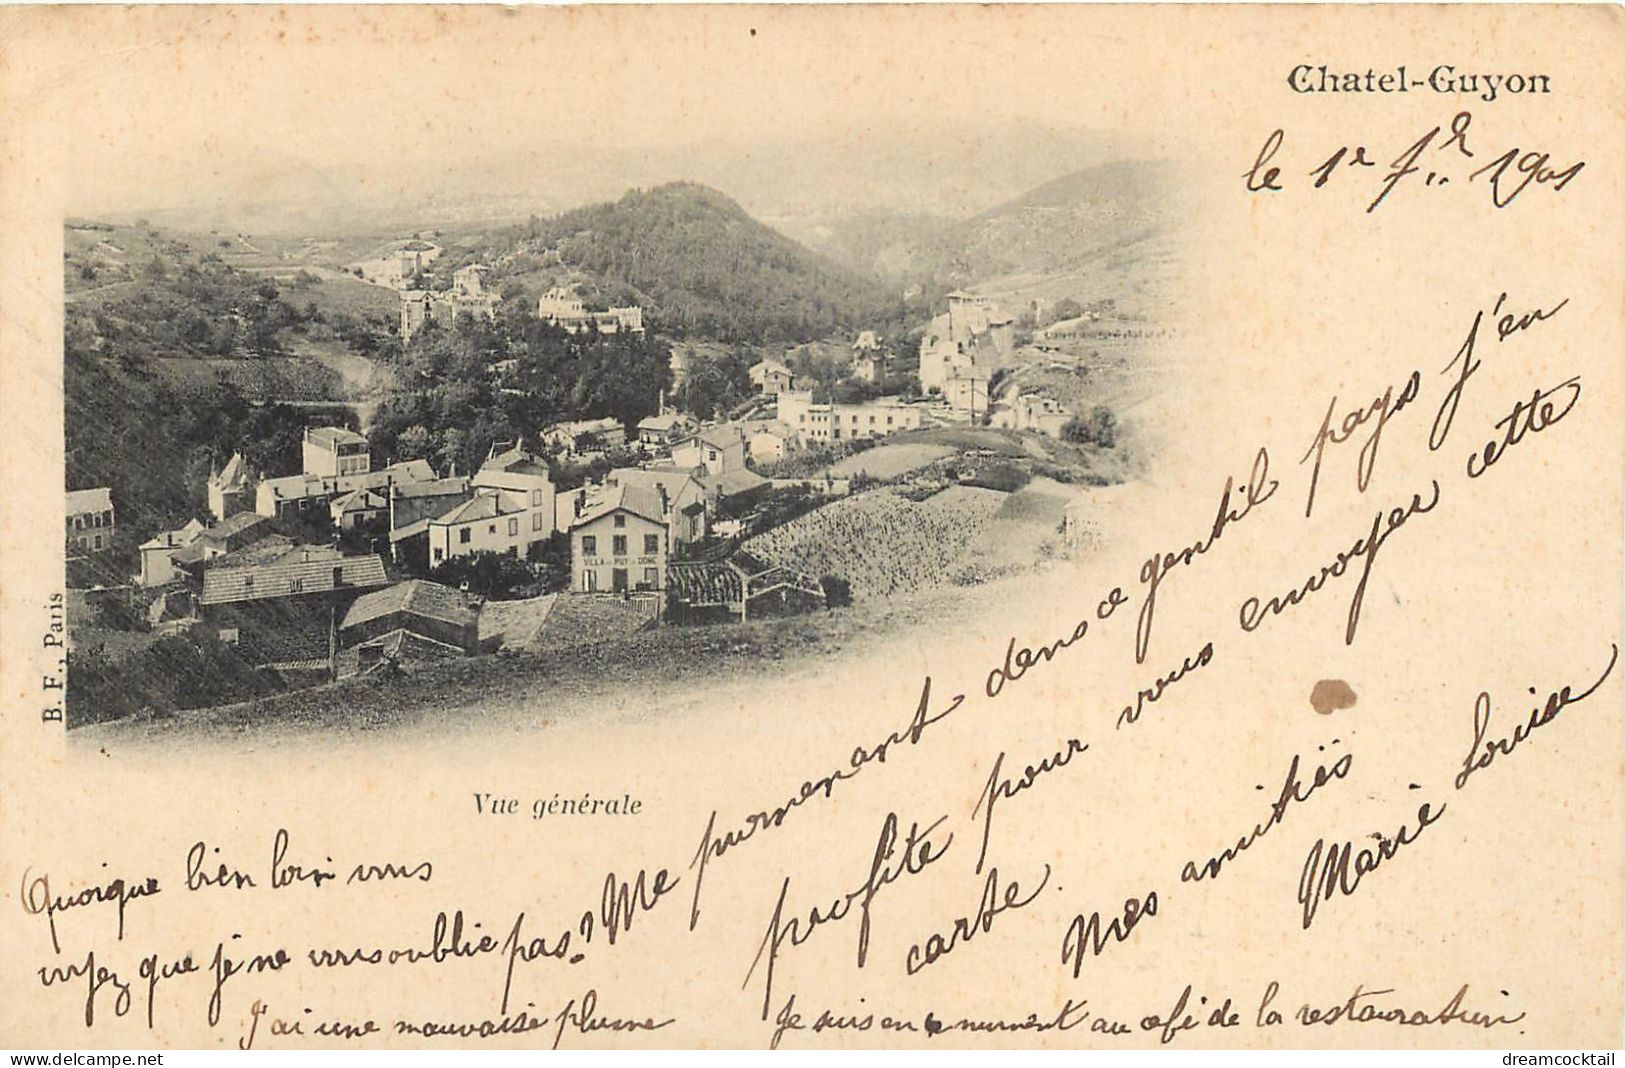 Chatel-Guyon
le 1e fr 1901
B. F., Paris
VILLA DU PUY DE DOME
Vue générale
Me promenant dans ce gentil pays j'en
profite pour vous envoyer cette
carte.
Mes amitiés
Marie Louise
Quoique bien loin vous
voyez que je ne vous oublie pas?
J'ai une mauvaise plume
Je suis en ce moment au café de la restauration.
dreamcocktail